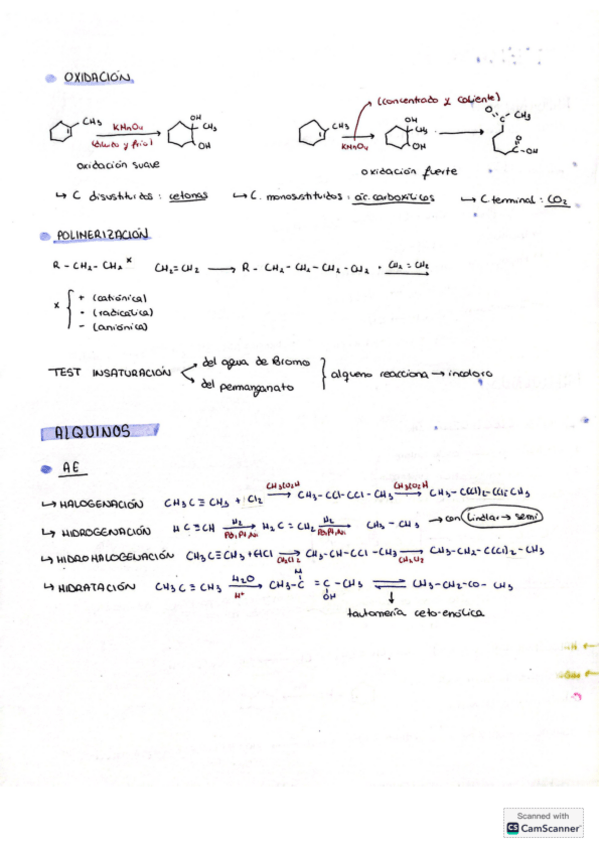 OXIDACIÓN
CH3 KMnO4 (diluido y frío) OH CH3 OH
oxidación suave
(concentrado y caliente)
CH3 KMnO4 OH CH3 OH O C - CH3 O C - OH
oxidación fuerte
↳ C disustituidos : cetonas ↳ C. monosustituidos : ác. carboxílicos → C terminal : CO2
POLIMERIZACIÓN
R - CH2 - CH2 * CH2 = CH2 → R - CH2 - CH2 - CH2 - CH2 · CH2 = CH2
* { + (catiónica)
· (radicálica)
- (aniónica)
TEST INSATURACIÓN del agua de Bromo
del permanganato } alqueno reacciona → incoloro
ALQUINOS
AE
↳ HALOGENACIÓN CH3C ≡ CH3 + Cl2 CH3CO2H → CH3 - CCl - CCl - CH3 CH3CO2H → CH3 - C(Cl)2 - CCl2 - CH3
↳ HIDROGENACIÓN HC ≡ CH H2 → Pd, Pt, Ni H2C = CH2 H2 → Pd, Pt, Ni CH3 - CH3 → con Lindlar → semi
↳ HIDROHALOGENACIÓN CH3C ≡ CH3 + HCl → CH2Cl2 CH3 - CH - CCl - CH3 → CH2Cl2 CH3 - CH2 - C(Cl)2 - CH3
↳ HIDRATACIÓN CH3C ≡ CH3 H2O → H+ CH3 - C H = C - CH3 OH ⇌ CH3 - CH2 - CO - CH3
tautomería ceto-enólica
Scanned with
CS CamScanner